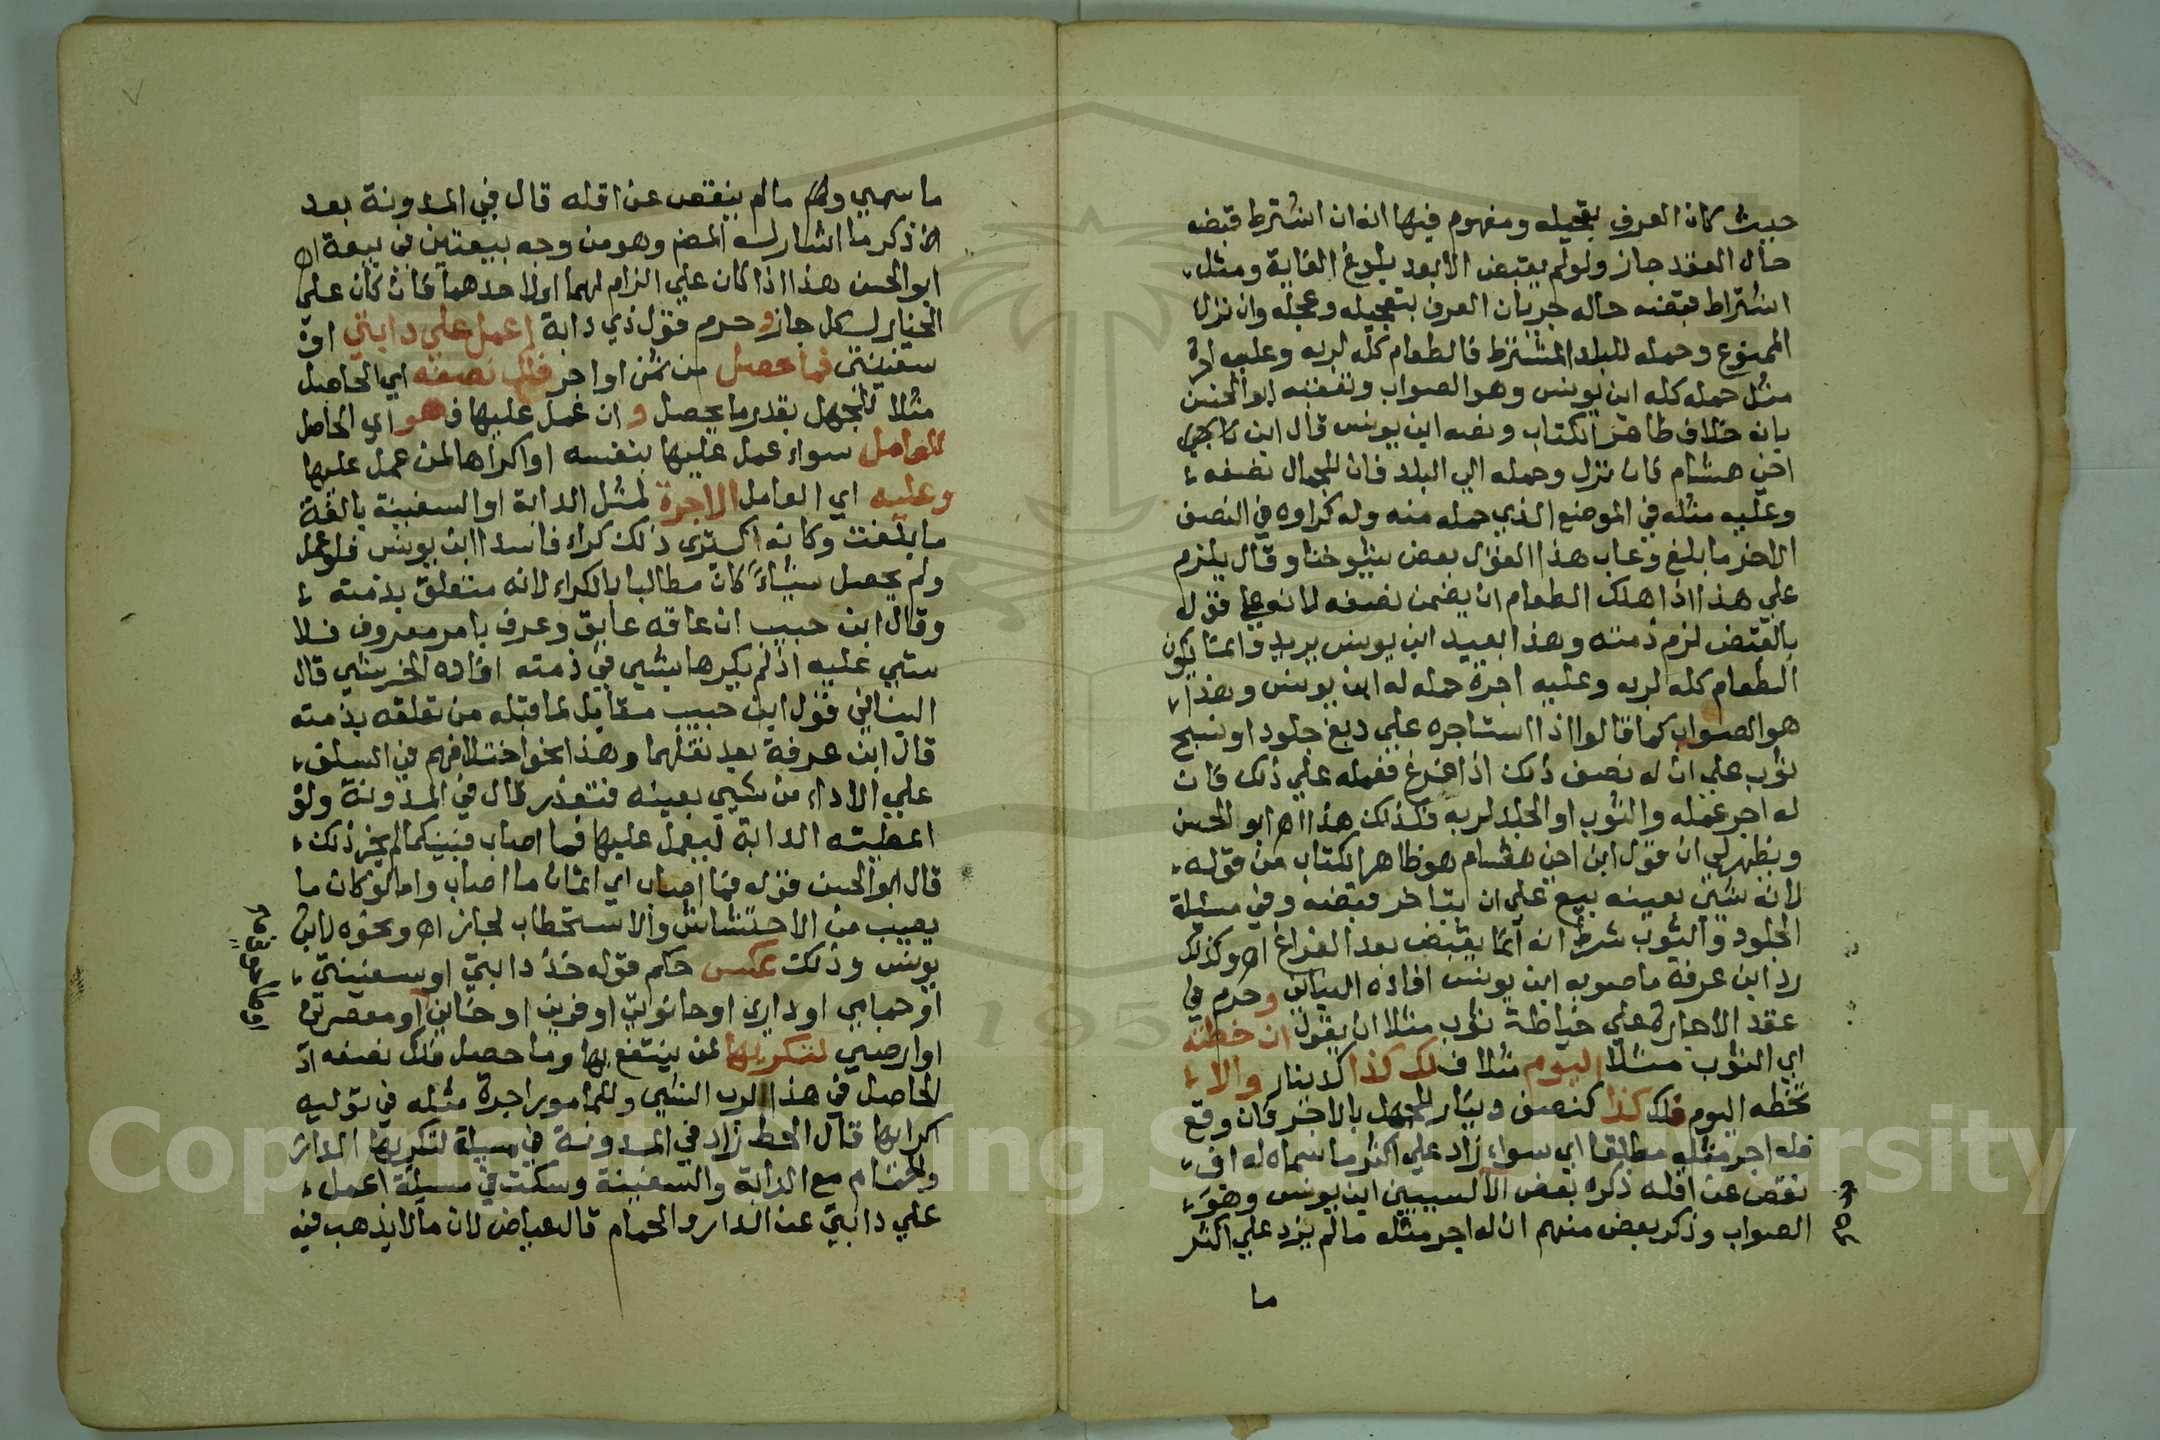 حيث كان العرف بتعجيله ومفهوم فيها انه ان اشترط قبضه
حال العقد جاز ولو لم يقبض الا بعد بلوغ الغاية ومثل
اشتراط قبضه حاله جريان العرف بتعجيله وعجله وان نزل
الممنوع وحمله للبلد المشترط فالطعام كله لربه وعليه اجرة
مثل حمله كله ابن يونس وهو الصواب وتعقبه ابو الحسن
بانه خلاف ظاهر الكتاب ونصه ابن يونس قال ابن
اخي هشام فان نزل وحمله الي البلد فان للجمال نصفه
وعليه مثله في الموضع الذي حمله منه وله كراوه في النصف
الاخر ما بلغ وعاب هذا القول بعض شيوخنا وقال يلزم
علي هذا اذا هلك الطعام ان يضمن نصفه لانه علي قوله
بالقبض لزم ذمته وهذا بعيد ابن يونس يريد وانما يكون
الطعام كله لربه وعليه اجرة حمله له ابن يونس وهذا
هو الصواب كما قالوا اذا استاجره علي دبغ جلود او نسج
ثوب علي ان له نصف ذلك اذا فرغ فعمله علي ذلك فان
له اجر عمله والثوب او الجلد لربه فكذلك هذا اه ابو الحسن
ويظهر لي ان قول ابن اخي هشام هو ظاهر الكتاب من قوله
لانه شي بعينه بيع علي ان يتاخر قبضه وفي مسئلة
الجلود والثوب شرط انه انما يقبض بعد الفراغ اه وكذلك
رد ابن عرفة ما صوبه ابن يونس افاده البناني وحرم في
عقد الاجارة علي خياطة ثوب مثلا ان يقول ان خطته
اي الثوب مثلا اليوم مثلا فلك كذا كدينار والا
تخطه اليوم فلك كذا كنصف دينار للجهل بالاجر فان وقع
فله اجر مثله مطلقا اي سواء زاد علي اكثر ما سماه له او
نقص عن اقله ذكره بعض الاندلسيين ابن يونس وهو
الصواب وذكر بعض منهم ان له اجر مثله ما لم يزد علي اكثر
ما
ما سمي ولا ما لم ينقص عن اقله قال في المدونة بعد
ان ذكر ما اشار له المص وهو من وجه بيعتين في بيعة اه
ابو الحسن هذا اذا كان علي الزام لهما او لاحدهما فان كان علي
الخيار لكل جاز وحرم قول ذي دابة اعمل علي دابتي او
سفينتي فما حصل من ثمن او اجر فلك نصفه اي الحاصل
مثلا للجهل بقدر ما يحصل وان عمل عليها فهو اي الحاصل
للعامل سواء عمل عليها بنفسه او اكراها لمن عمل عليها
وعليه اي العامل الاجرة لمثل الدابة او السفينة بالغة
ما بلغت وكانه اكترى ذلك كراء فاسدا ابن يونس فلو عمل
ولم يحصل شياء كان مطالبا بالكراء لانه متعلق بذمته
وقال ابن حبيب ان عاقه عايق وعرف بامر معروف فلا
شي عليه اذ لم يكرها بشي في ذمته افاده الخرشي قال
البناني قول ابن حبيب مقابل لما قبله من تعلقه بذمته
قال ابن عرفة بعد نقلهما وهذا نحو اختلافهم في السلف
علي الاداء من شي بعينه فتعذر قال في المدونة ولو
اعطيته الدابة ليعمل عليها فما اصاب فبينكما لم يجز ذلك
قال ابو الحسن قوله فما اصاب اي اثمان ما اصاب واما لو كان ما
يصيب من الاحتشاش والاستحطاب لجاز اه ونحوه لابن
يونس وذلك عكس حكم قوله خذ دابتي او سفينتي
او حمامي او داري او حانوتي او فرني او خاني او معصرتي
او ارضي لتكريها لمن ينتفع بها وما حصل فلك نصفه اذ
الحاصل في هذا لرب الشي وللمامور اجرة مثله في توليه
كرايها قال الحط زاد في المدونة في مسيلة لتكريها الدار
والحمام مع الدابة والسفينة وسكت في مسيلة اعمل
علي دابتي عن الدار والحمام قال عياض لان ما لا يذهب فيه